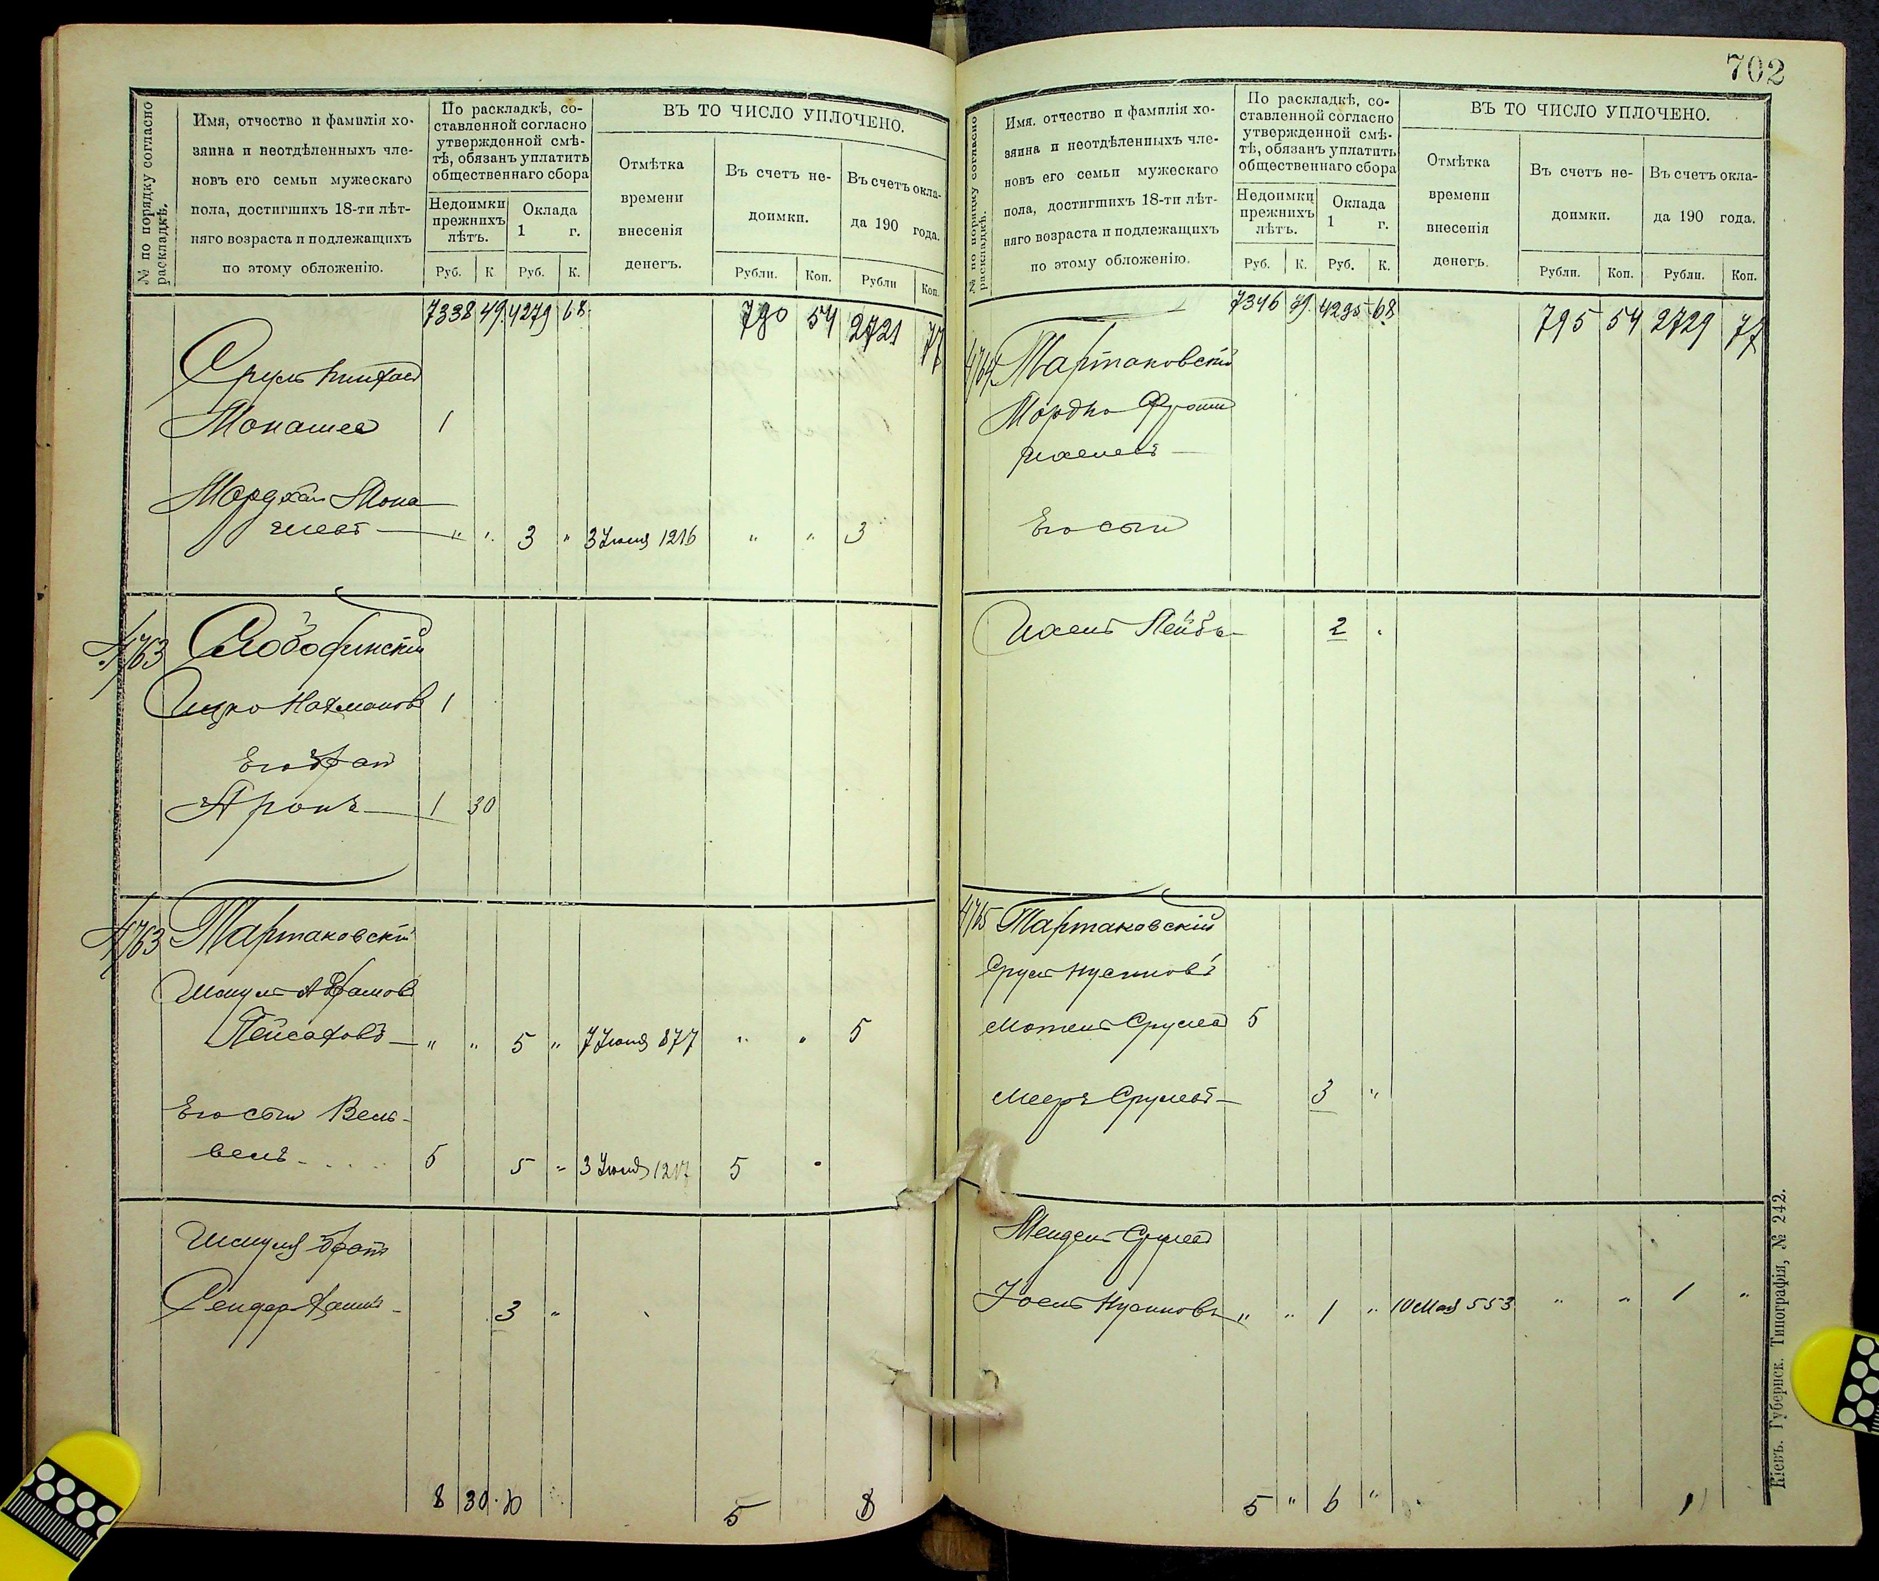 702
№ по порядку согласно раскладкѣ.
Имя, отчество и фамилія хо-
зяина и неотдѣленныхъ чле-
новъ его семьи мужескаго
пола, достигшихъ 18-ти лѣт-
няго возраста и подлежащихъ
по этому обложенію.
По раскладкѣ, со-
ставленной согласно
утвержденной смѣ-
тѣ, обязанъ уплатить
общественнаго сбора
Недоимки
прежнихъ
лѣтъ.
Оклада
1 г.
Руб. К Руб. К.
ВЪ ТО ЧИСЛО УПЛОЧЕНО.
Отмѣтка
времени
внесенія
денегъ.
Въ счетъ не-
доимки.
Въ счетъ окла-
да 190 года.
Рубли. Коп. Рубли Коп.
7338 49 4279 68 790 54 2721 77
Сруль
Монашев 1
Мордхай Мона
шевъ — " " 3 " 3 Іюня 1216 " " 3
4763 Слободинскій
Ицко Нахмановъ 1
Его братъ
Аронъ — 1 30
4763 Тартаковскій
Шмуль Абрамовъ
Пейсаховъ — " " 5 " 7 Іюня 877 " " 5
Его сынъ Вель-
вель 5 5 " 3 Іюня 1217 5 "
Шмуля братъ
Сендер 3 "
8 30 5 8
№ по порядку согласно раскладкѣ.
Имя. отчество и фамилія хо-
зяина и неотдѣленныхъ чле-
новъ его семьи мужескаго
пола, достигшихъ 18-ти лѣт-
няго возраста и подлежащихъ
по этому обложенію.
По раскладкѣ, со-
ставленной согласно
утвержденной смѣ-
тѣ, обязанъ уплатить
общественнаго сбора
Недоимки
прежнихъ
лѣтъ.
Оклада
1 г.
Руб. К. Руб. К.
ВЪ ТО ЧИСЛО УПЛОЧЕНО.
Отмѣтка
времени
внесенія
денегъ.
Въ счетъ не-
доимки.
Въ счетъ окла-
да 190 года.
Рубли. Коп. Рубли. Коп.
7346 79 4295 68 795 54 2729 77
4764 Тартаковскій
Мордко
Его сынъ
Лейбъ — 2 "
4765 Тартаковскій
Сруль Нусиновъ
Мотель Срулев 5
Мееръ Срулевъ — 3 "
Мендель Срулев
Іосель Нусиновъ " " 1 " 10 Мая 553 " " 1 "
5 " 6 " 1
Кіевъ. Губернск. Типографія, № 242.